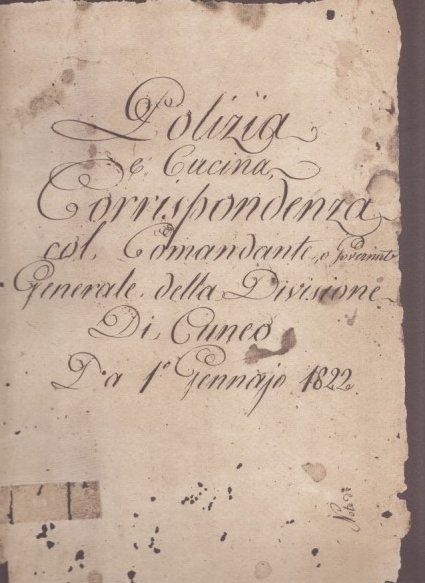 Polizia
e Cucina,
Corrispondenza
col, Comandante, o Governat
Generale, della Divisione
Di, Cuneo
Da 1º Gennajo 1822